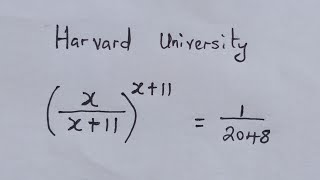 Harvard University
(x/(x+11))^(x+11) = 1/2048